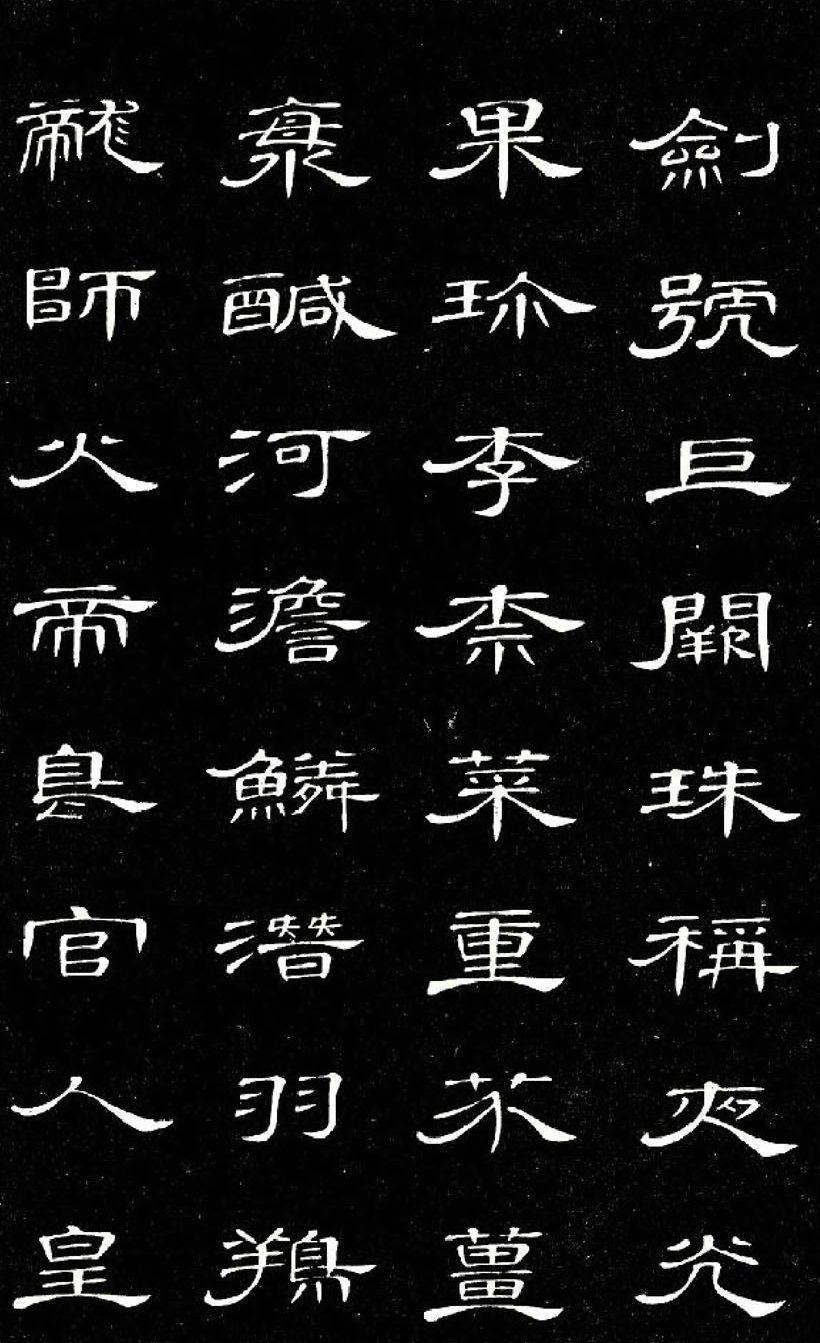 劍號巨闕珠稱夜光
果珎李柰菜重芥薑
醎河澹鱗潛羽鴹
龍師火帝鳥官人皇